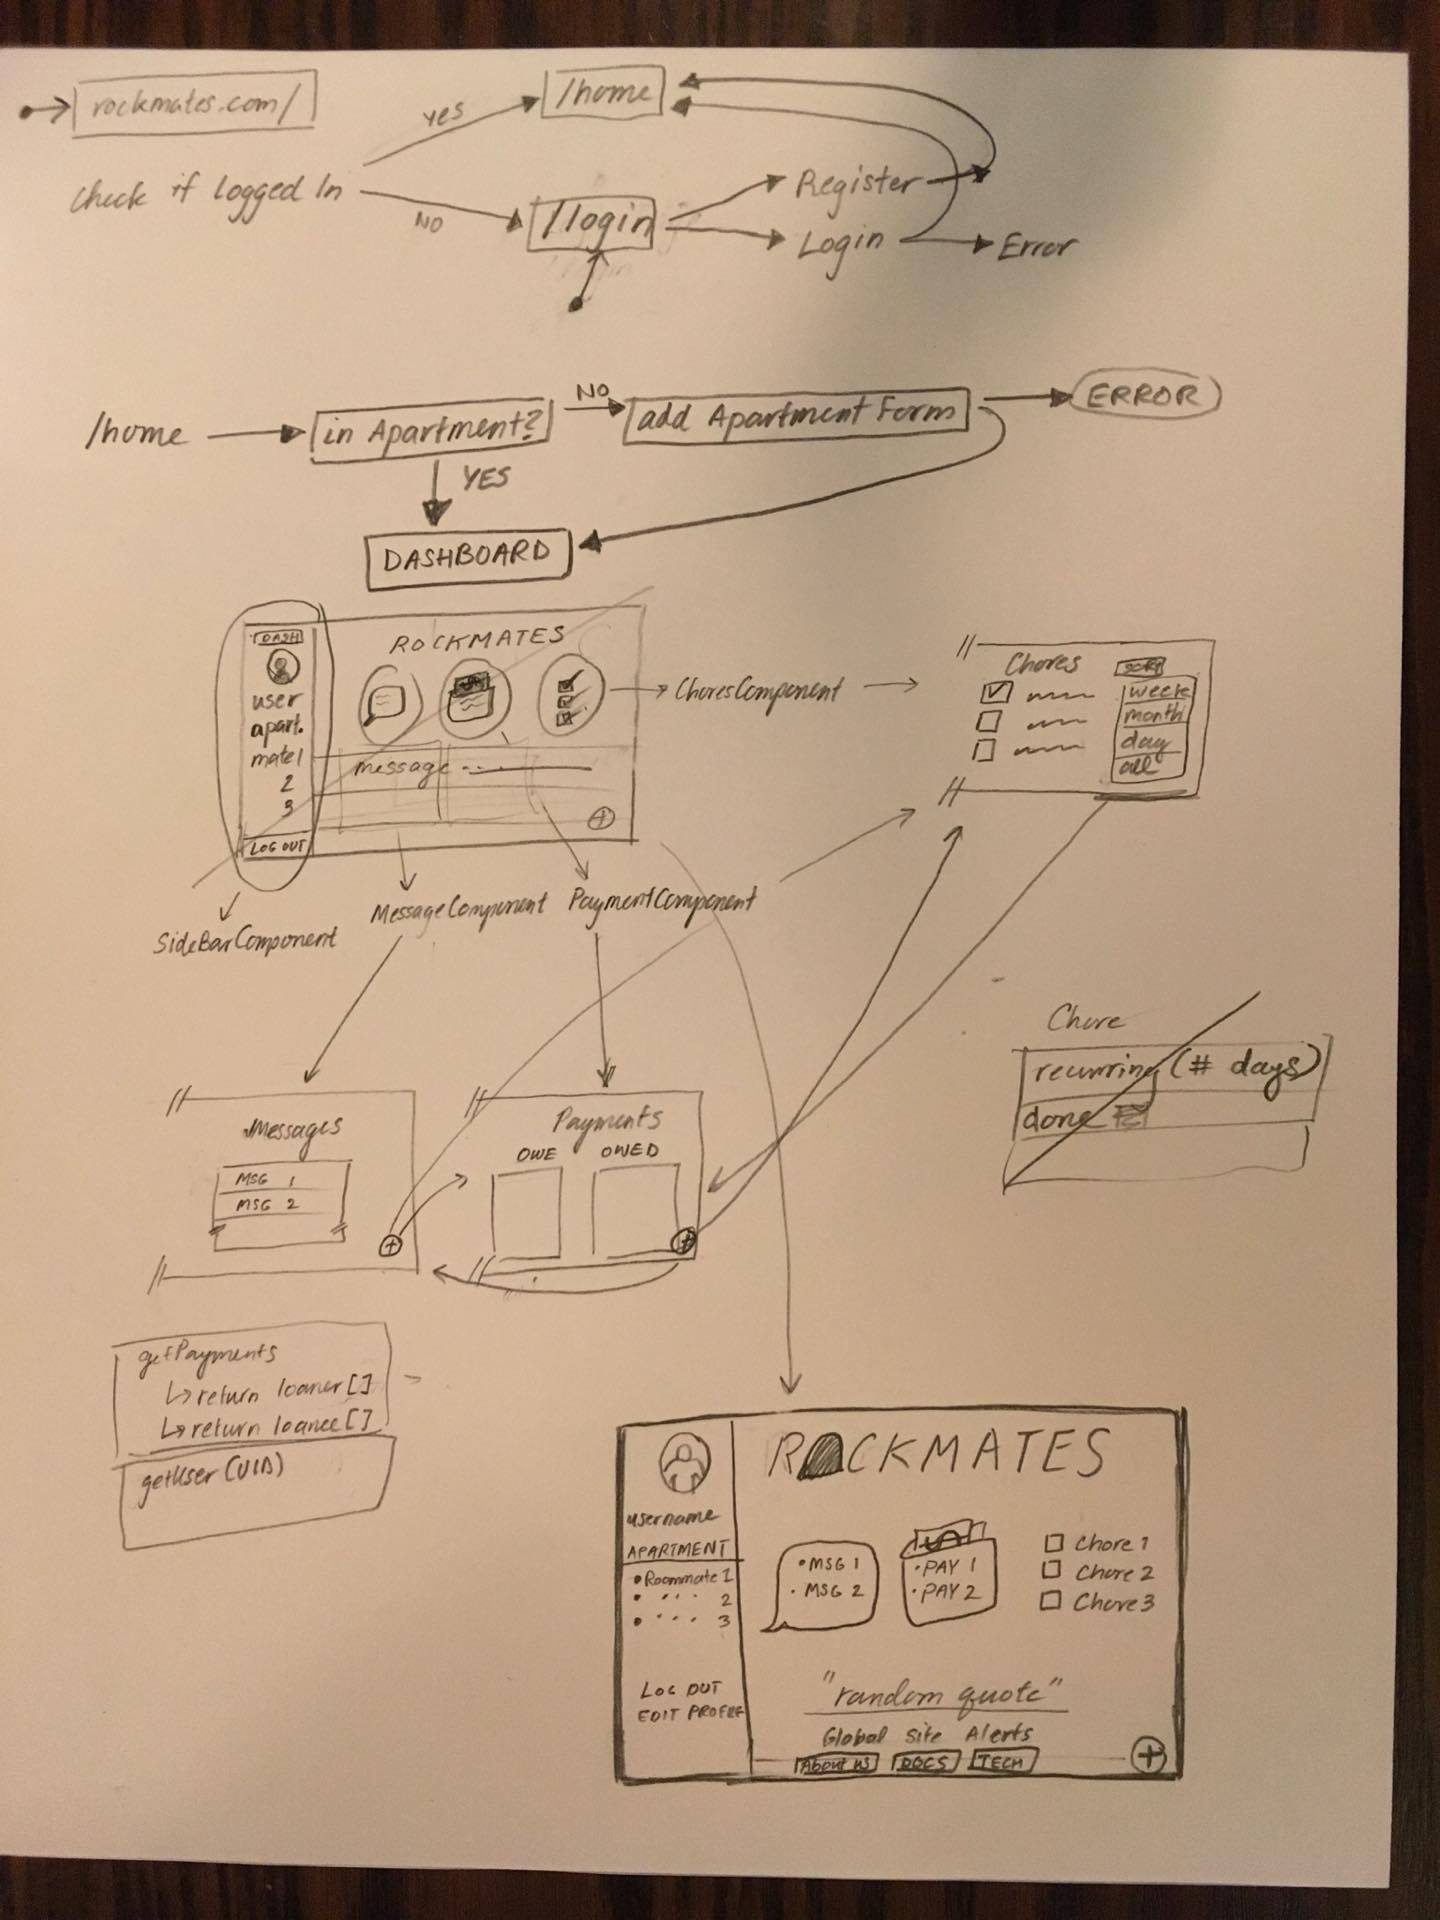 rockmates.com/
yes
/home
Check if Logged In
NO
/login
Register
Login
Error
/home
in Apartment?
NO
add Apartment Form
ERROR
YES
DASHBOARD
DASH
user
apart.
mate1
2
3
LOG OUT
ROCKMATES
message
ChoresComponent
Chores
SORT
week
month
day
all
SideBarComponent
MessageComponent
PaymentComponent
Chore
recurring (# days)
done
Messages
MSG 1
MSG 2
Payments
OWE OWED
getPayments
↳ return loaner[]
↳ return loanee[]
getUser(UID)
username
APARTMENT
• Roommate 1
• " " 2
• " " 3
LOG OUT
EDIT PROFILE
ROCKMATES
• MSG 1
• MSG 2
• PAY 1
• PAY 2
Chore 1
Chore 2
Chore 3
"random quote"
Global Site Alerts
About us DOCS TECH